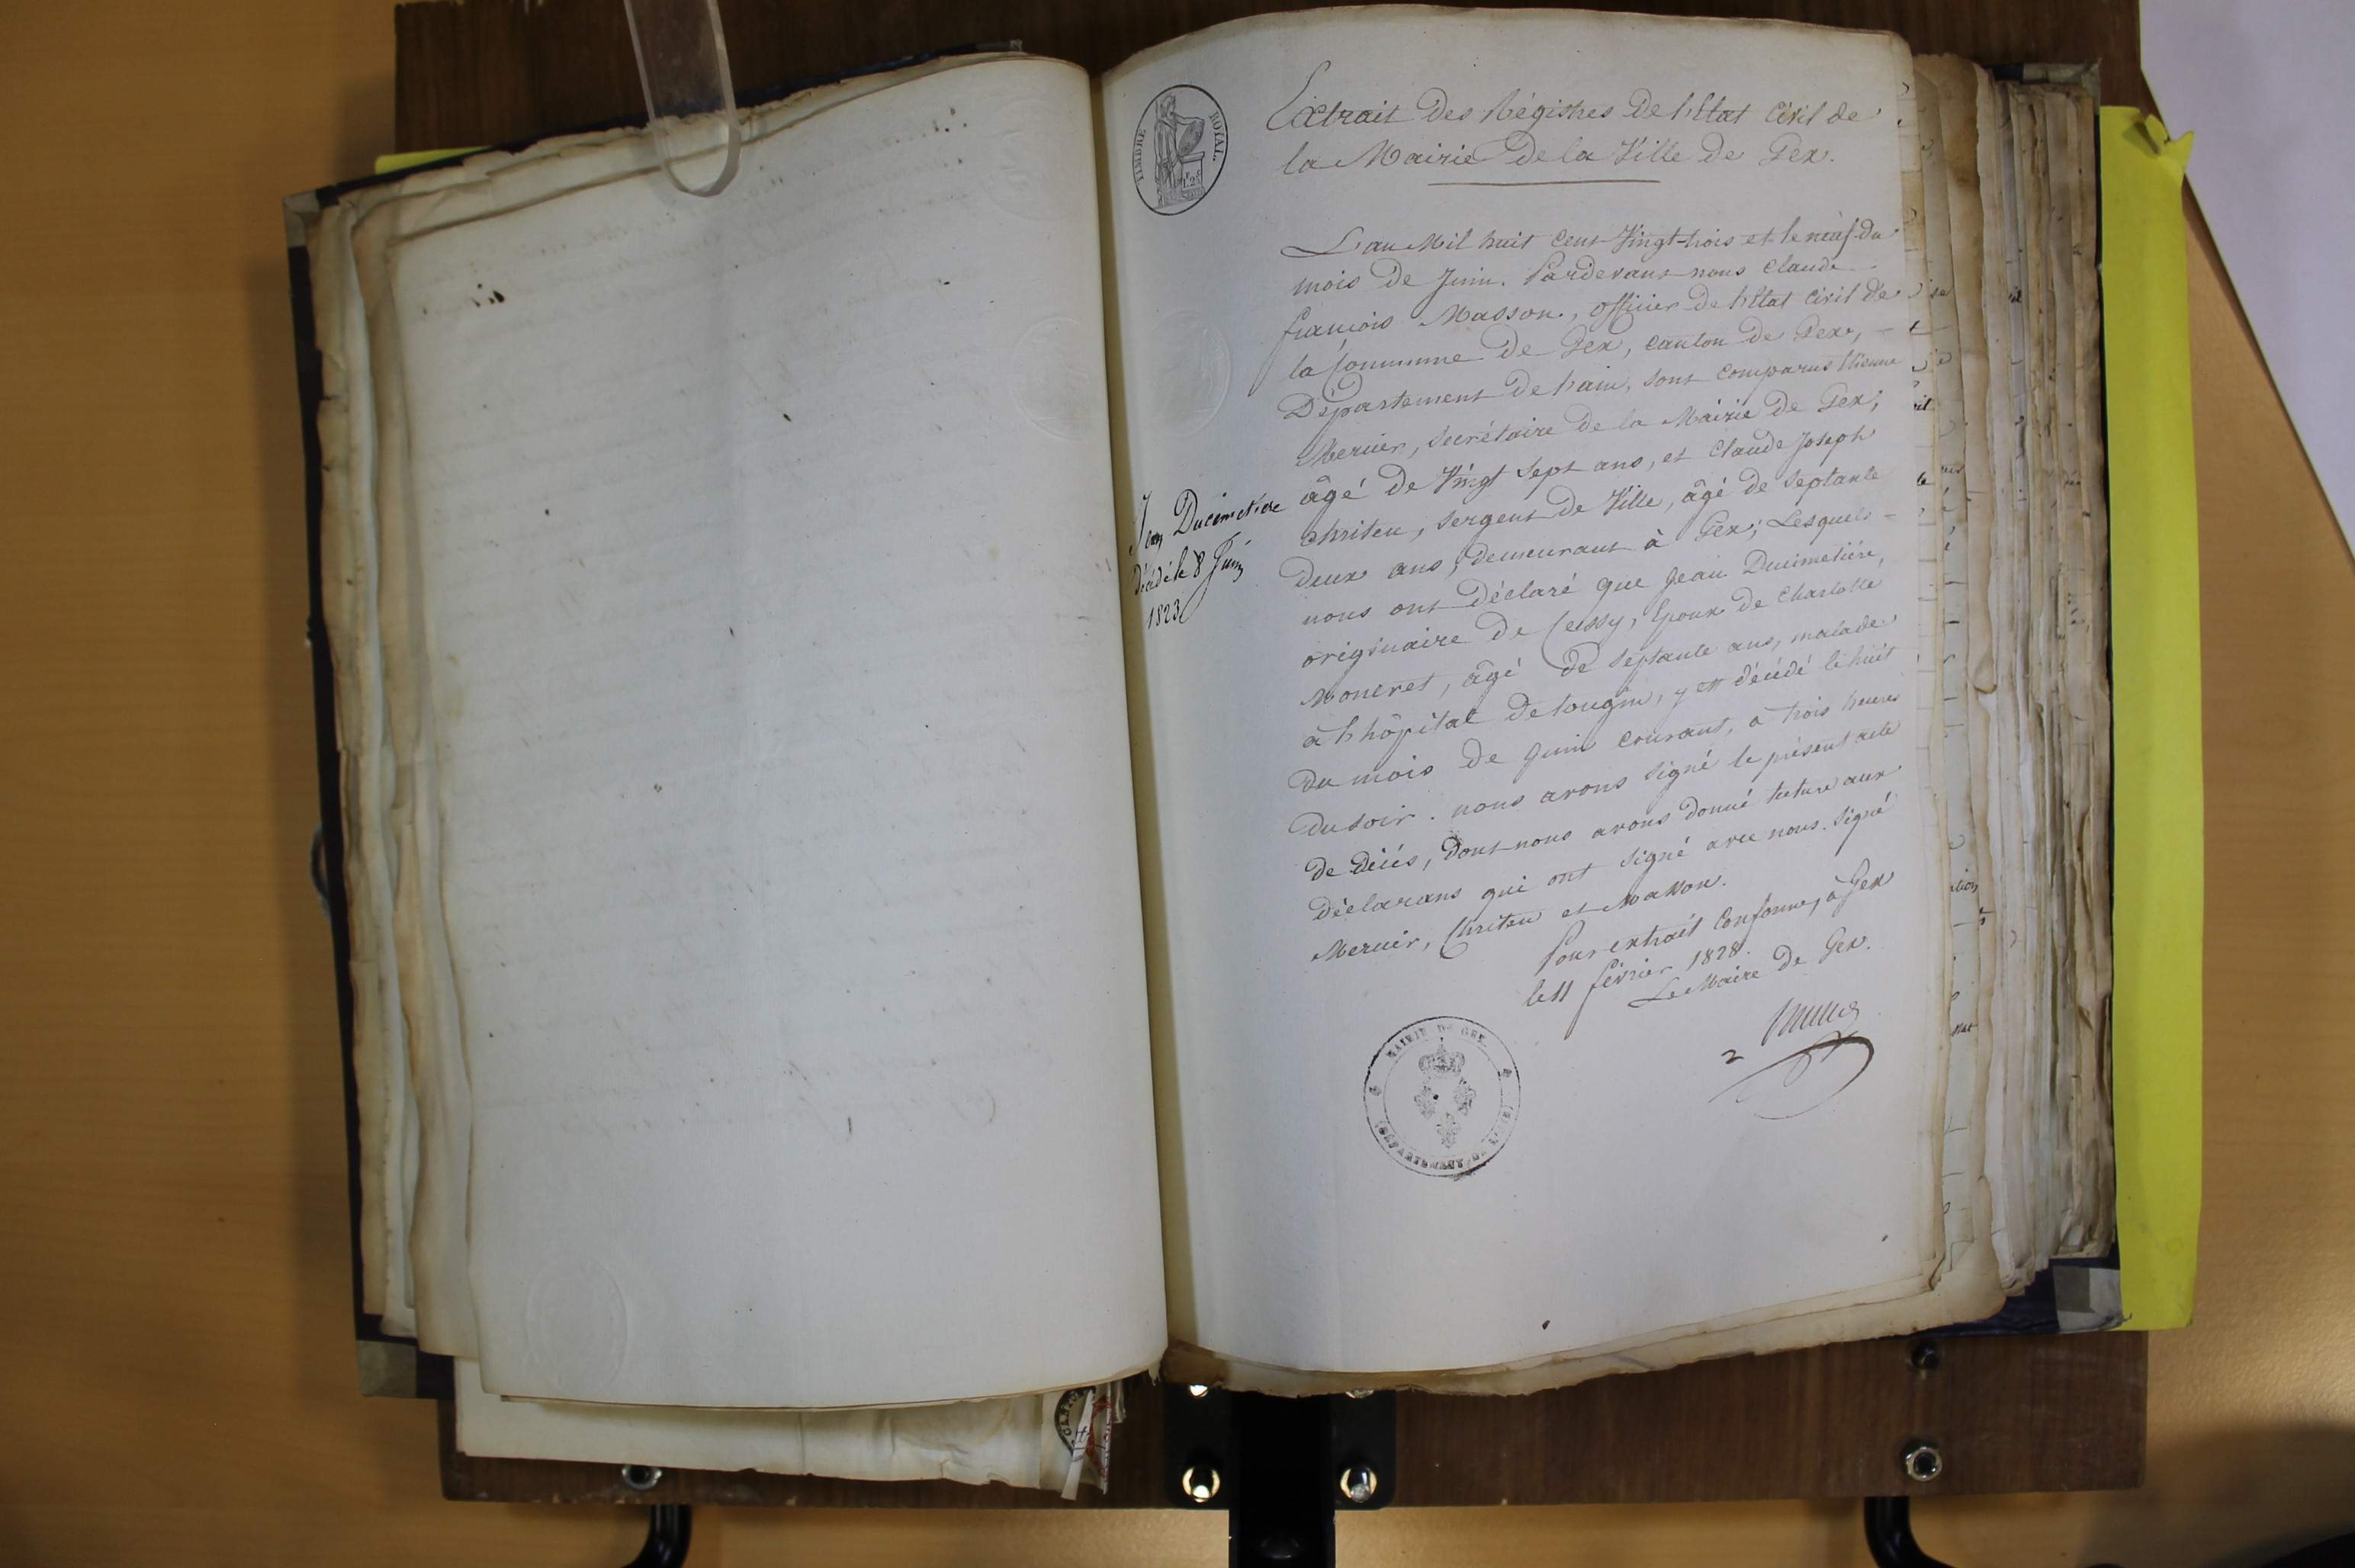 TIMBRE ROYAL
Extrait Des Régistres De l'Etat Civil de
la Mairie De la Ville De Gex.
L'an Mil huit cent Vingt-trois et le neuf du
mois De Juin. Pardevant nous Claude
françois Masson, officier De l'Etat Civil De
la Commune De Gex, canton De Gex,
Département De l'ain, sont comparus Etienne
Mercier, secrétaire De la Mairie De Gex,
âgé De Vingt sept ans, et Claude Joseph
Christen, sergent De Ville, âgé De Septante
Deux ans, Demeurant à Gex; Lesquels
nous ont Déclaré que Jean Ducimetière,
originaire De Cessy, Epoux De Charlotte
Moncret, âgé De Septante ans, malade
à l'hôpital De tougin, y est décédé le huit
Du mois De Juin courant, à trois heures
Du soir. nous avons signé le présent acte
De Décés, Dont nous avons Donné lecture aux
Déclarans qui ont signé avec nous. Signé
Mercier, Christen et Masson.
Pour extrait Conforme, à Gex
le 11 février 1828.
Le Maire De Gex.
Jean Ducimetiere
Décédé le 8 Juin
1823
MAIRIE DE GEX
DÉPARTEMENT DE L'AIN